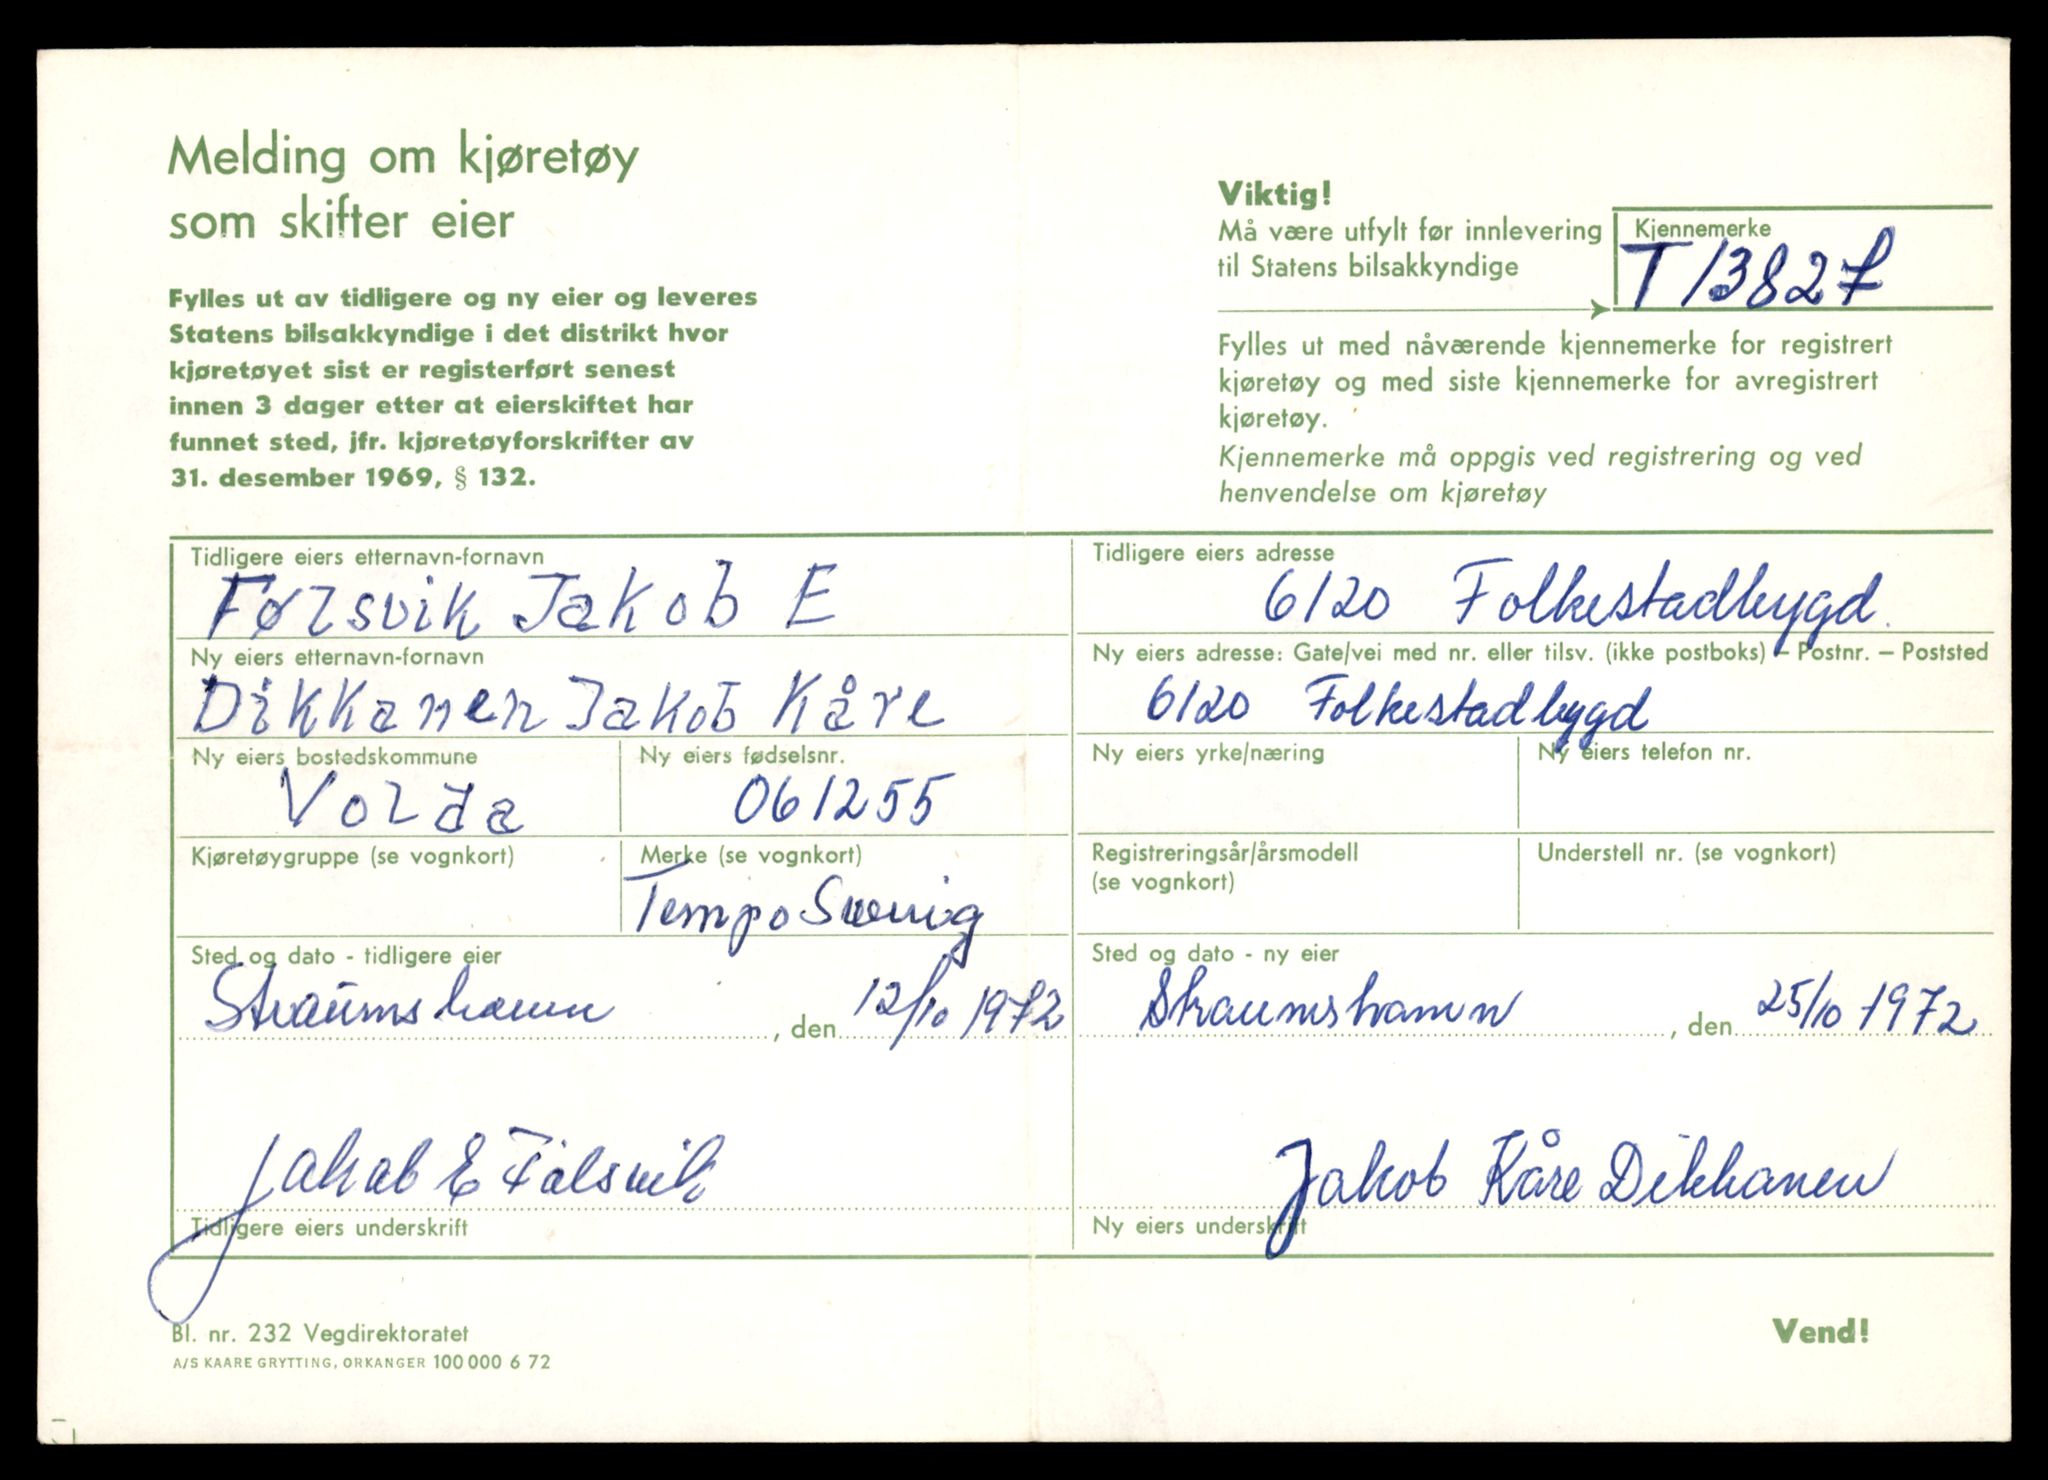 Melding om kjøretøy
som skifter eier
Fylles ut av tidligere og ny eier og leveres
Statens bilsakkyndige i det distrikt hvor
kjøretøyet sist er registerført senest
innen 3 dager etter at eierskiftet har
funnet sted, jfr. kjøretøyforskrifter av
31. desember 1969, § 132.
Viktig!
Må være utfylt før innlevering
til Statens bilsakkyndige
Kjennemerke
T 13827
Fylles ut med nåværende kjennemerke for registrert
kjøretøy og med siste kjennemerke for avregistrert
kjøretøy.
Kjennemerke må oppgis ved registrering og ved
henvendelse om kjøretøy
Tidligere eiers etternavn-fornavn
Følsvik Jakob E
Tidligere eiers adresse
6120 Folkestadbygd.
Ny eiers etternavn-fornavn
Dikkanen Jakob Kåre
Ny eiers adresse: Gate/vei med nr. eller tilsv. (ikke postboks) – Postnr. – Poststed
6120 Folkestadbygd
Ny eiers bostedskommune
Volda
Ny eiers fødselsnr.
061255
Ny eiers yrke/næring
Ny eiers telefon nr.
Kjøretøygruppe (se vognkort)
Merke (se vognkort)
Tempo
Registreringsår/årsmodell
(se vognkort)
Understell nr. (se vognkort)
Sted og dato - tidligere eier
Straumshamn, den 12/10 1972
Sted og dato - ny eier
Straumshamn, den 25/10 1972
Jakob E Følsvik
Tidligere eiers underskrift
Jakob Kåre Dikkanen
Ny eiers underskrift
Bl. nr. 232 Vegdirektoratet
A/S KAARE GRYTTING, ORKANGER 100 000 6 72
Vend!